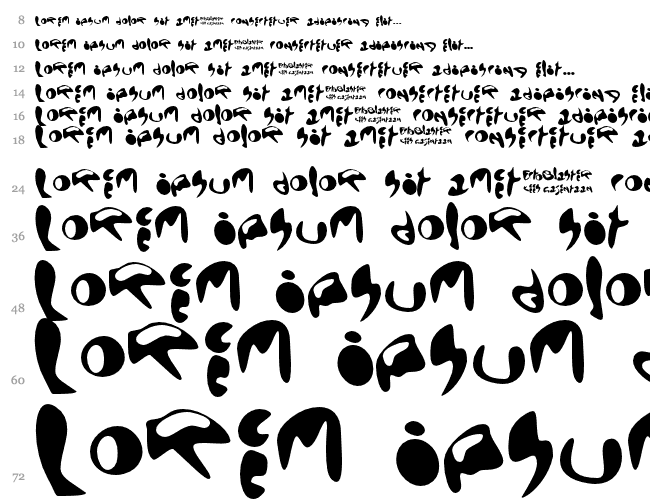 8 Lorem ipsum dolor sit amet consectetuer adipiscing elit...
10 Lorem ipsum dolor sit amet consectetuer adipiscing elit...
12 Lorem ipsum dolor sit amet consectetuer adipiscing elit...
14 Lorem ipsum dolor sit amet consectetuer adipiscing
16 Lorem ipsum dolor sit amet consectetuer
18 Lorem ipsum dolor sit amet consectetuer
24 Lorem ipsum dolor sit amet co
36 Lorem ipsum dolor sit
48 Lorem ipsum dolo
60 Lorem ipsum
72 Lorem ipsu